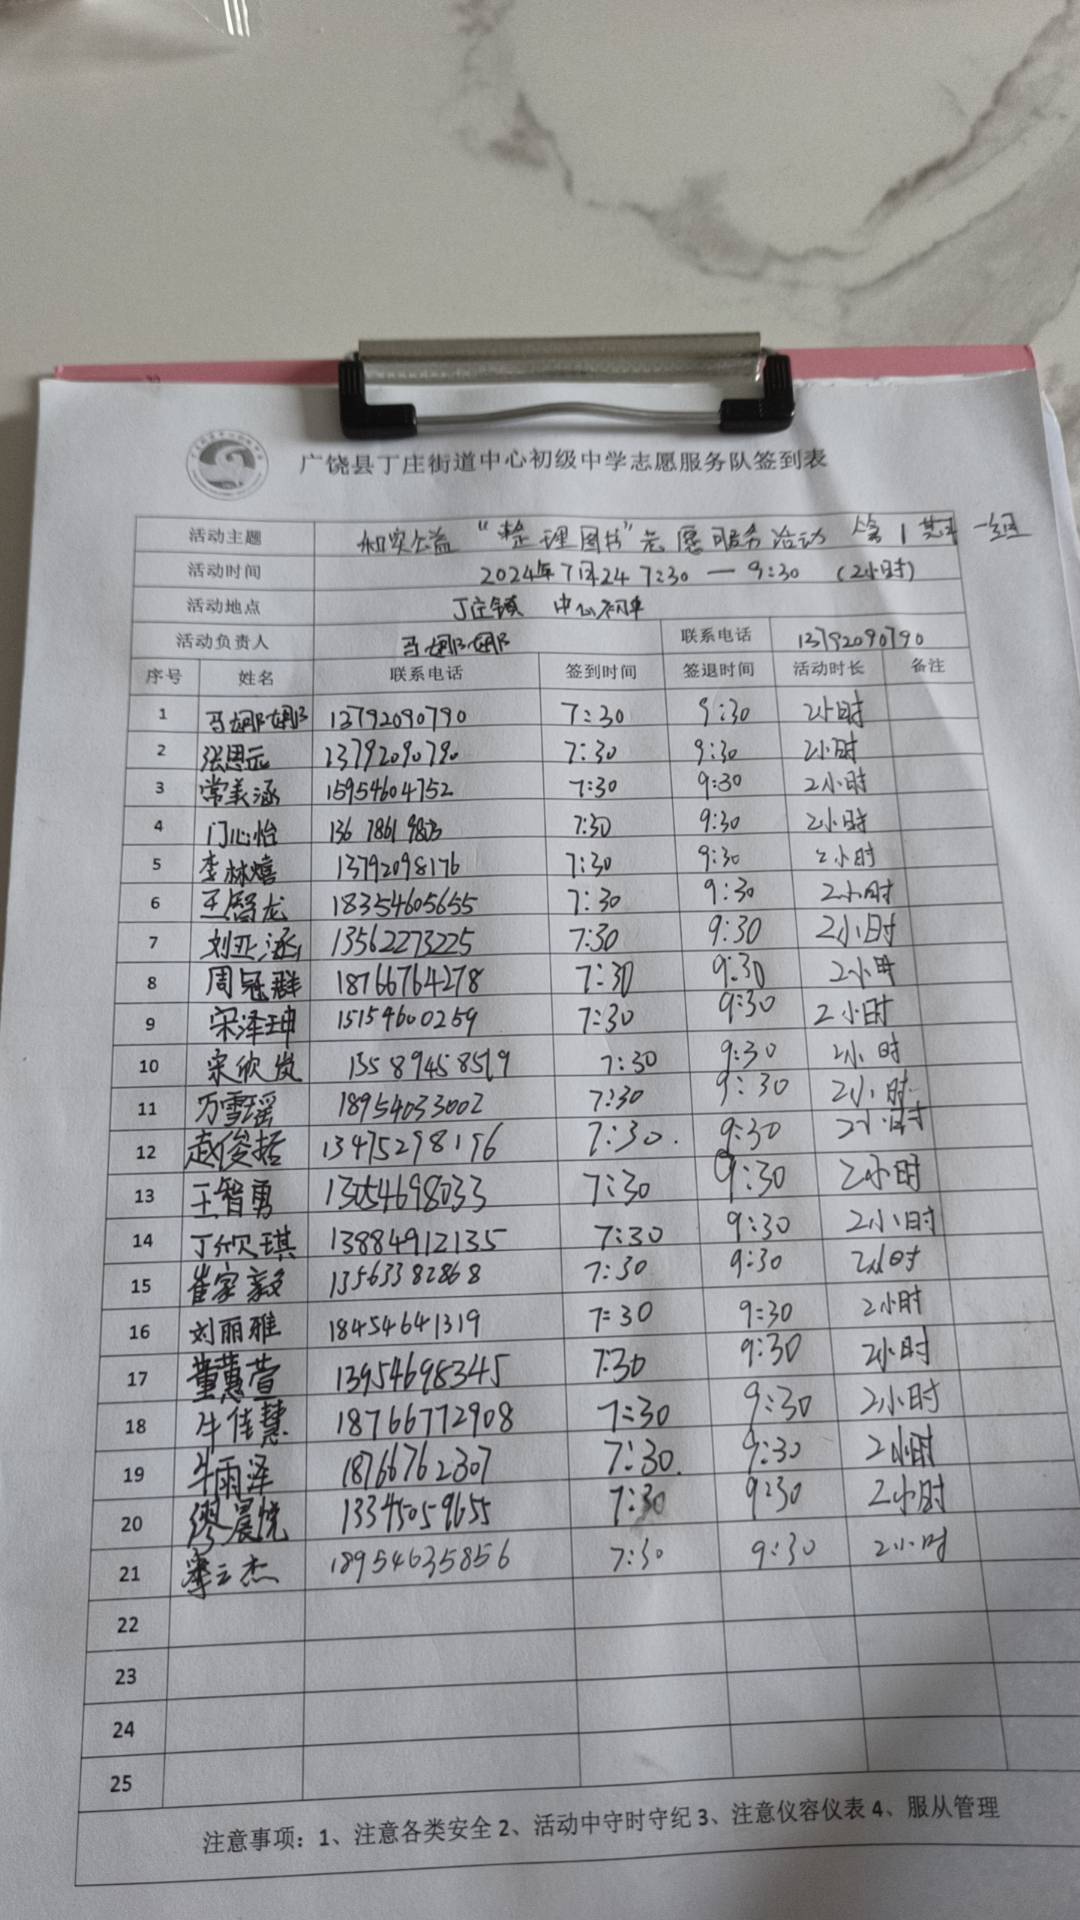 广饶县丁庄街道中心初级中学志愿服务队签到表
活动主题 和实公益“整理图书”志愿服务活动 第1期 一组
活动时间 2024年7月24 7:30 — 9:30 (2小时)
活动地点 丁庄镇 中心初中
活动负责人 马娜娜 联系电话 13792090790
序号 姓名 联系电话 签到时间 签退时间 活动时长 备注
1 马娜娜 13792090790 7:30 9:30 2小时
2 张思远 13792090790 7:30 9:30 2小时
3 常美涵 15954604752 7:30 9:30 2小时
4 门心怡 7:30 9:30 2小时
5 李林熺 13792098176 7:30 9:30 2小时
6 王智龙 18354605655 7:30 9:30 2小时
7 刘亚涵 13562273225 7:30 9:30 2小时
8 周冠群 18766764278 7:30 9:30 2小时
9 宋泽坤 15154600259 7:30 9:30 2小时
10 宋欣岚 13589458519 7:30 9:30 2小时
11 万雪瑶 18954033002 7:30 9:30 2小时
12 赵俊括 13475298196 7:30. 9:30 2小时
13 王智勇 13054698033 7:30 9:30 2小时
14 丁欣琪 13884912135 7:30 9:30 2小时
15 崔家毅 13563382868 7:30 9:30 2小时
16 刘丽雅 18454641319 7:30 9:30 2小时
17 董蕙萱 13954698345 7:30 9:30 2小时
18 牛佳慧 18766772908 7:30 9:30 2小时
19 牛雨泽 18766762307 7:30. 9:30 2小时
20 缪晨悦 13345059655 7:30 9:30 2小时
21 云杰 18954635856 7:30 9:30 2小时
22
23
24
25
注意事项：1、注意各类安全 2、活动中守时守纪 3、注意仪容仪表 4、服从管理